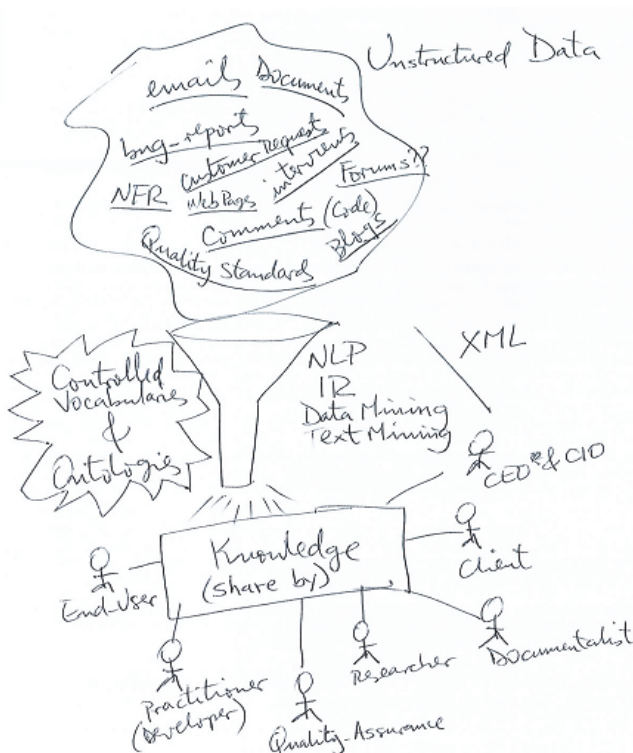 Unstructured Data
emails Documents
bug-reports
Customer Requests
interviews
Forums??
NFR
WebPages
Comments (Code)
Blogs
Quality Standards
Controlled
Vocabularies
&
Ontologies
NLP
IR
Data Mining
Text Mining
XML
CEO & CIO
Knowledge
(share by)
Client
End-User
Documentalist
Researcher
Practitioner
(Developer)
Quality-Assurance